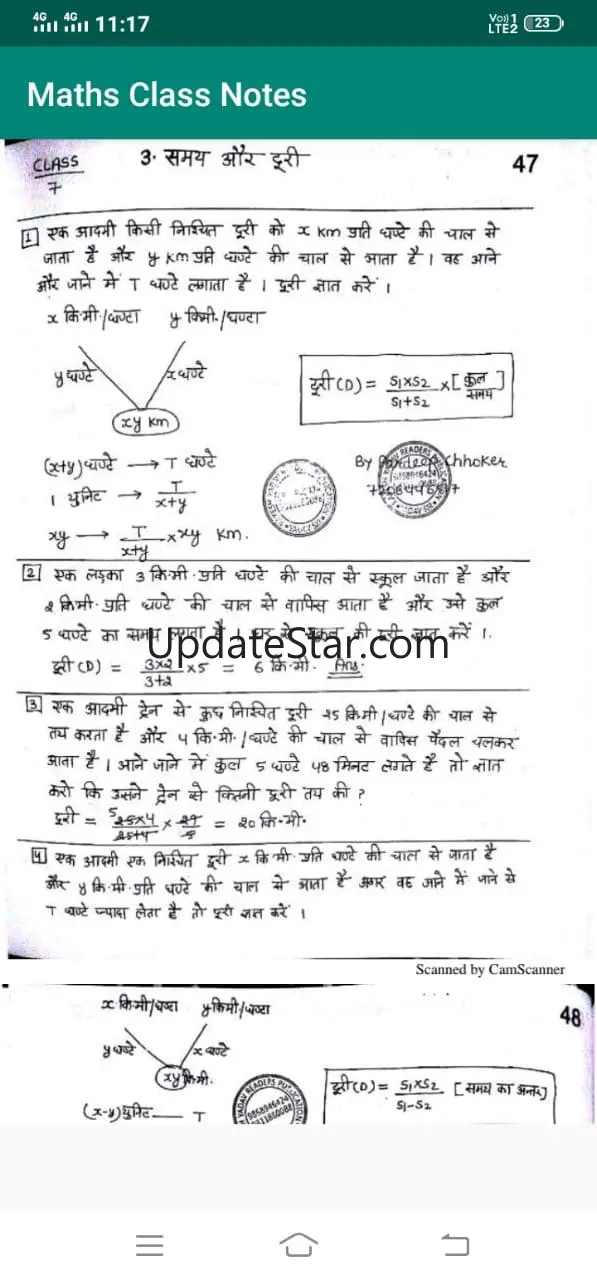 4G 4G 11:17 Vo)) 1 LTE2 23
Maths Class Notes
CLASS 7
3. समय और दूरी
47
1 एक आदमी किसी निश्चित दूरी को x Km प्रति घण्टे की चाल से
जाता है और y km प्रति घण्टे की चाल से आता है। वह आने
और जाने में T घण्टे लगाता है। दूरी ज्ञात करें।
x कि.मी./घण्टा y किमी./घण्टा
y घण्टे x घण्टे
xy km
दूरी (D) = S1×S2 / S1+S2 × [कुल समय]
(x+y) घण्टे → T घण्टे
By Pardeep Chhoker
1 युनिट → T / x+y
xy → T / x+y × xy km.
2 एक लड़का 3 कि.मी. प्रति घण्टे की चाल से स्कूल जाता है और
2 कि.मी. प्रति घण्टे की चाल से वापिस आता है और उसे कुल
5 घण्टे का समय लगता है। घर से स्कूल की दूरी ज्ञात करें।
UpdateStar.com
दूरी (D) = 3×2 / 3+2 ×5 = 6 कि.मी. Ans.
3 एक आदमी ट्रेन से कुछ निश्चित दूरी 25 किमी/घण्टे की चाल से
तय करता है और 4 कि.मी./घण्टे की चाल से वापिस पैदल चलकर
आता है। आने जाने में कुल 5 घण्टे 48 मिनट लगते है तो ज्ञात
करो कि उसने ट्रेन से कितनी दूरी तय की?
दूरी = 25×4 / 25+4 × 29 / 5 = 20 कि.मी.
4 एक आदमी एक निश्चित दूरी x कि.मी प्रति घण्टे की चाल से जाता है
और y कि.मी प्रति घण्टे की चाल से आता है अगर वह आने में जाने से
T घण्टे ज्यादा लेता है तो दूरी ज्ञात करें।
Scanned by CamScanner
x कि.मी/घण्टा y किमी/घण्टा
48
y घण्टे x घण्टे
xy कि.मी.
दूरी (D) = S1×S2 / S1-S2 [समय का अन्तर]
(x-y) युनिट — T